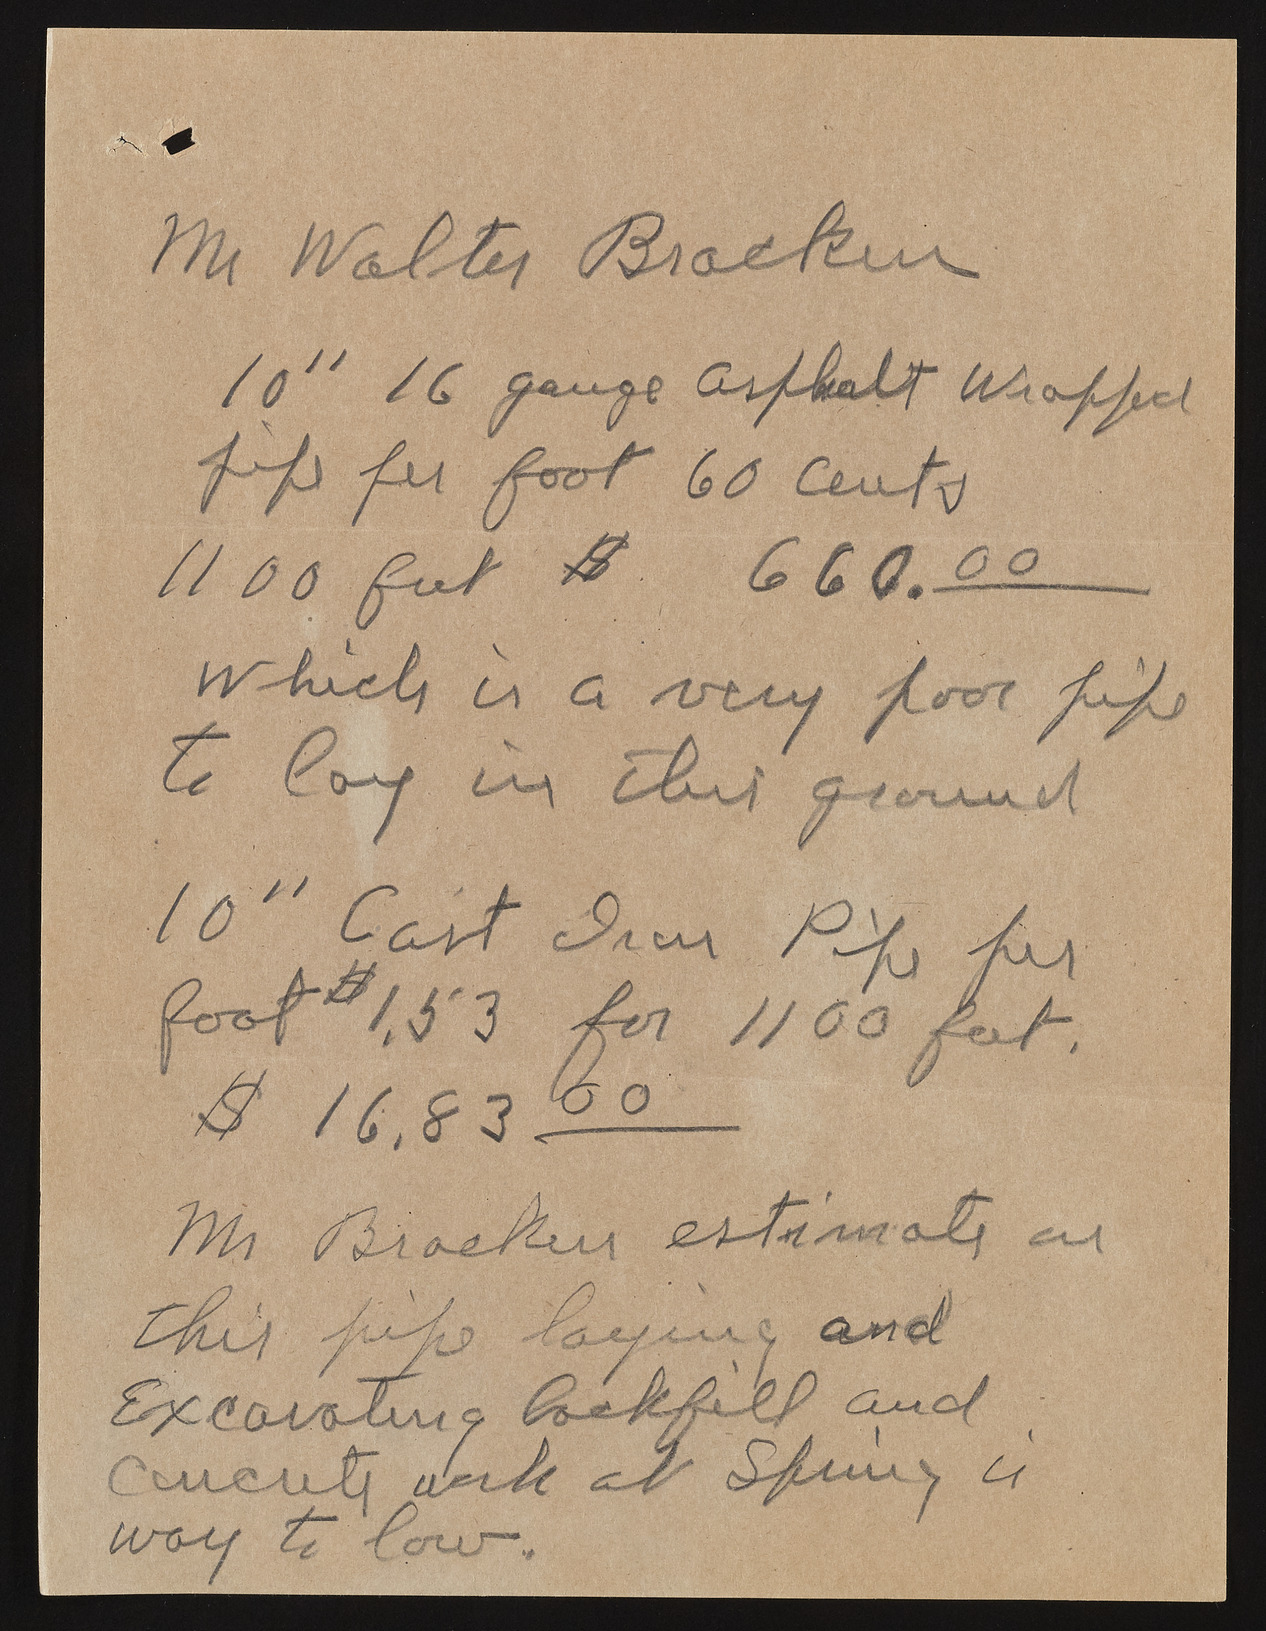 Mr Walter Bracken
10" 16 gauge asphalt wrapped
pipe per foot 60 cents
1100 feet $ 660.00
which is a very poor pipe
to lay in this ground
10" Cast Iron Pipe per
foot $1.53 for 1100 feet.
$ 16.83 00
Mr Bracken estimate on
this pipe laying and
Excavating backfill and
concrete work at Spring is
way to low.